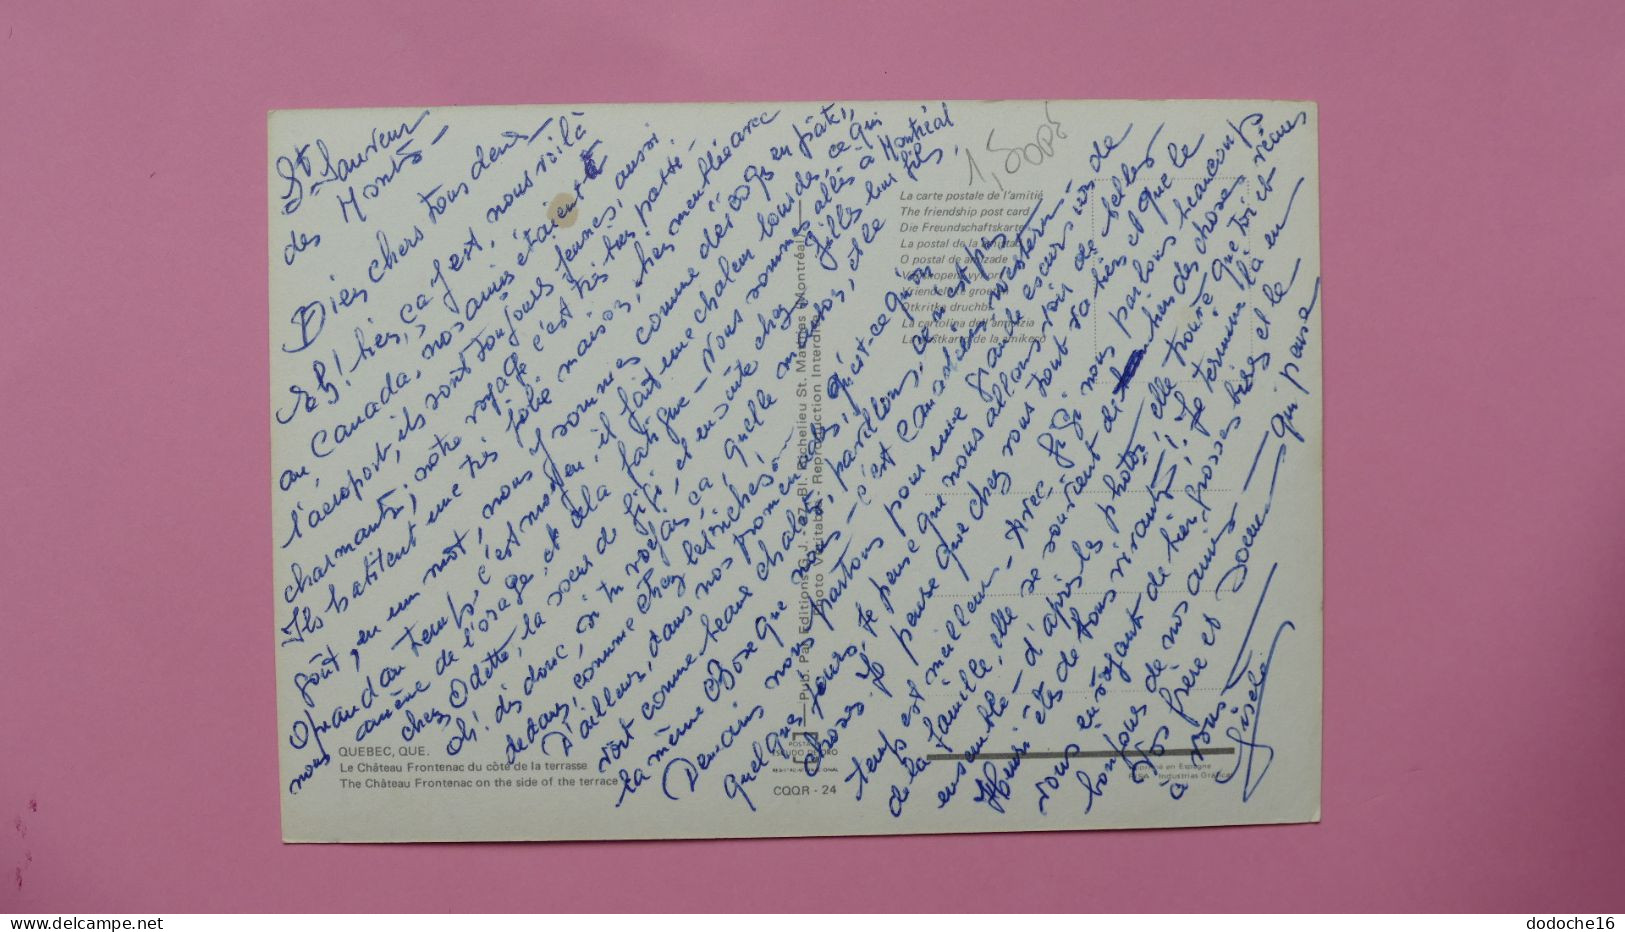 St Sauveur
des Monts –
Bien chers tous deux
Eh! bien, ça y est, nous voilà
au Canada, nos amis étaient à
l'aéroport, ils sont toujours jeunes, aussi
charmants; notre voyage s'est très bien passé –
Ils habitent une très jolie maison, bien meublée avec
goût, en un mot, nous y sommes comme des coqs en pâte,
quand au temps c'est moyen, il fait une chaleur lourde ce qui
nous amène de l'orage, et de la fatigue – Nous sommes allés à Montréal
chez Odette, la soeur de Gigi, et ensuite chez filles leur fils.
Oh! dis donc, si tu voyais ça, quelle maison, et le
dedans, comme chez les riches –
D'ailleurs, dans nos promenades, qu'est-ce qu'on
voit comme beaux chalets, pavillons, c'est pis
la même chose que nous – c'est canadien, western –
Demain nous partons pour une grande excursion de
quelques jours. Je pense que nous allons voir de belles
choses. Je pense que chez nous tout va bien et que le
temps est meilleur – Avec Gigi nous parlons beaucoup
de la famille, elle se souvient de bien des choses vécues
ensemble – d'après les photos, elle trouve que toi et
Henri êtes de bons vivants! Je termine là en
vous envoyant de bien grosses bises et le
bonjour de nos amis –
Vos frère et soeur qui pense
à vous
Gisèle
1,50 OPE
La carte postale de l'amitié
The friendship post card
Die Freundschaftskarte
La postal de la amistad
O postal de amizade
Vriendelijke groet
Otkritka druchbi
La cartolina dell'amicizia
La postkarto de la amikeco
Pub. Par Editions G. J. - Bl. Richelieu St. Mathias (Montréal)
Photo Véritable - Reproduction Interdite
QUEBEC, QUE.
Le Château Frontenac du côté de la terrasse
The Château Frontenac on the side of the terrace
POSTAL
ESCUDO DE ORO
CQQR - 24
Imprimé en Espagne
FISA - Industrias Gráficas
delcampe.net
dodoche16